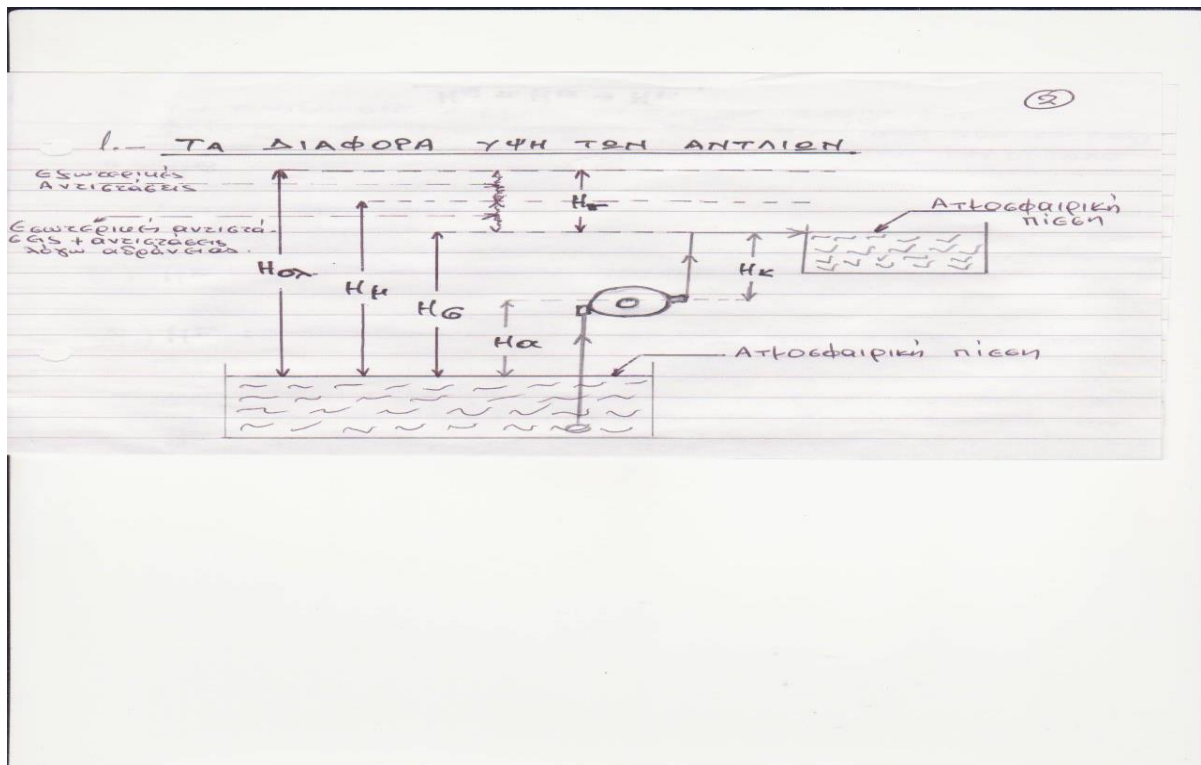 2
1.- ΤΑ ΔΙΑΦΟΡΑ ΥΨΗ ΤΩΝ ΑΝΤΛΙΩΝ
Εξωτερικές
Αντιστάσεις
Εσωτερικές αντιστά-
σεις + αντιστάσεις
λόγω αδράνειας.
Ηολ
Ημ
Ησ
Ηα
Ηκ
Ατμοσφαιρική
πίεση
Ατμοσφαιρική πίεση